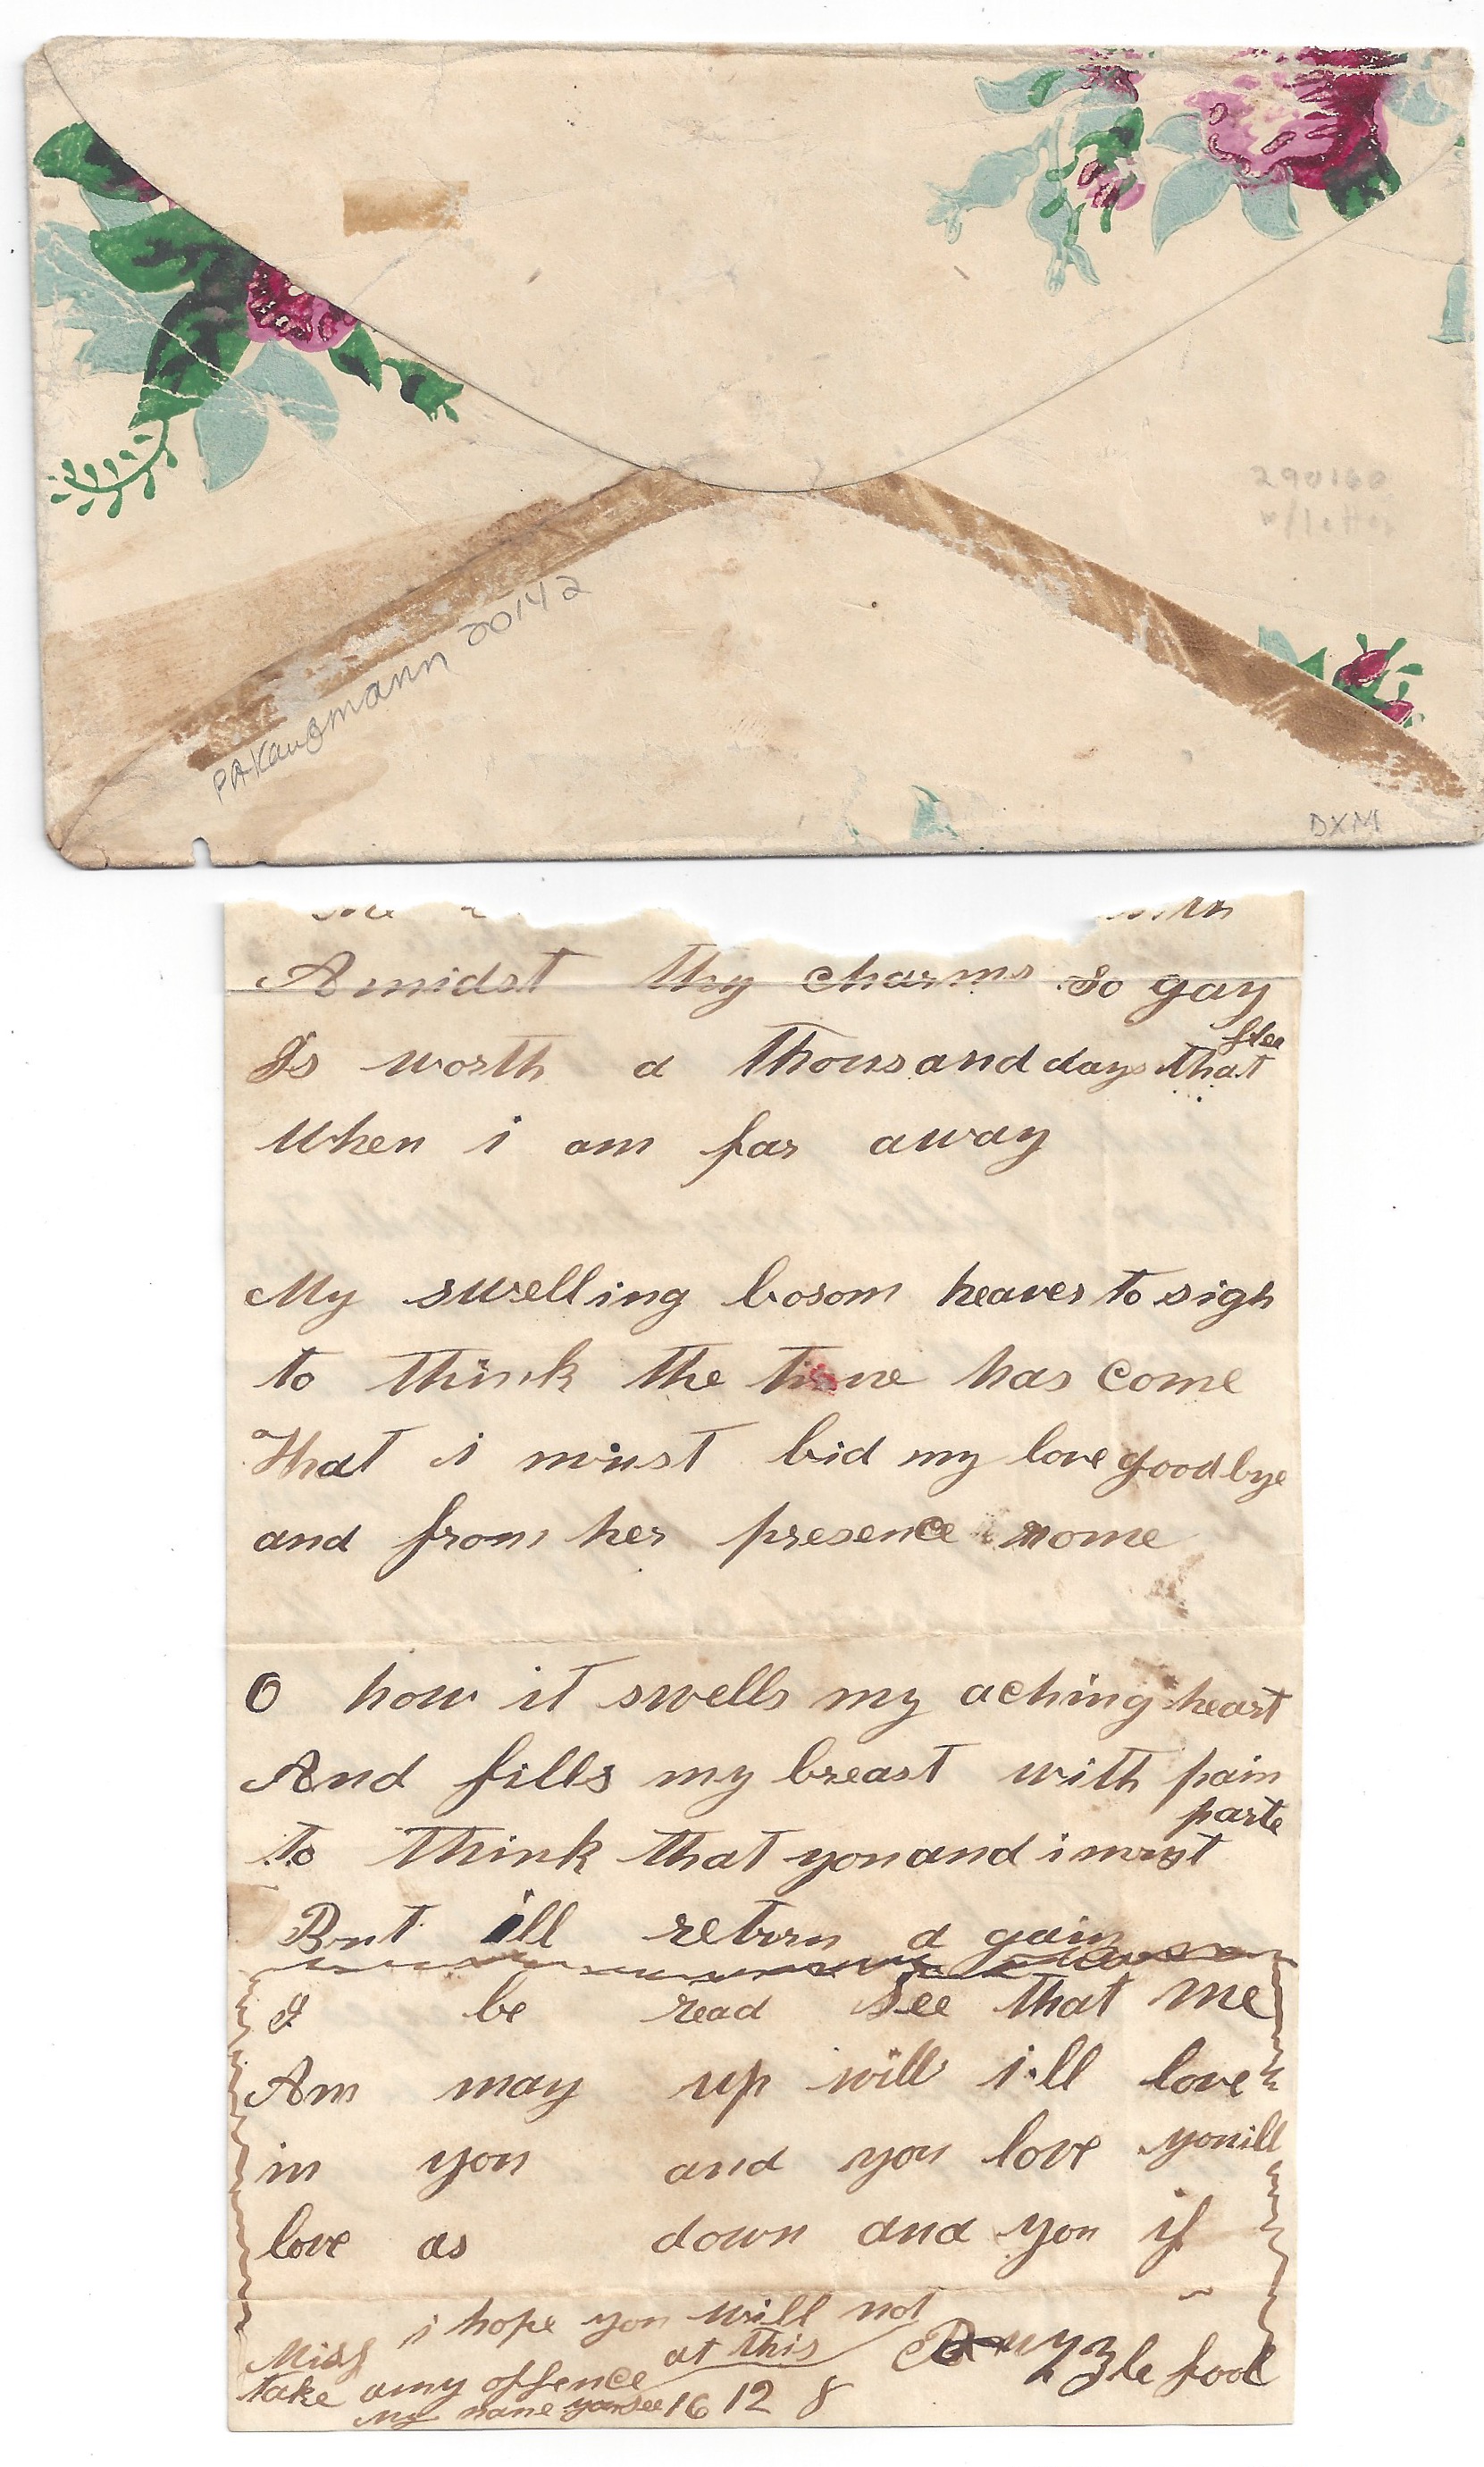 290160
w/letter
PAKaufmann 20142
DXM
Amidst thy charms so gay
Is worth a thousand days that
flee
When i am far away
My swelling bosom heaves to sigh
to think the time has come
That i must bid my love goodbye
and from her presence rome
O how it swells my aching heart
And fills my breast with pain
to think that you and i must
parte
But ill return a gain
I be read see that me
Am may up will i'll love
in you and you love you ill
love as down and you if
i hope you will not
Miss
take any offence at this
My name you see 16 12 8
Puzzle fool